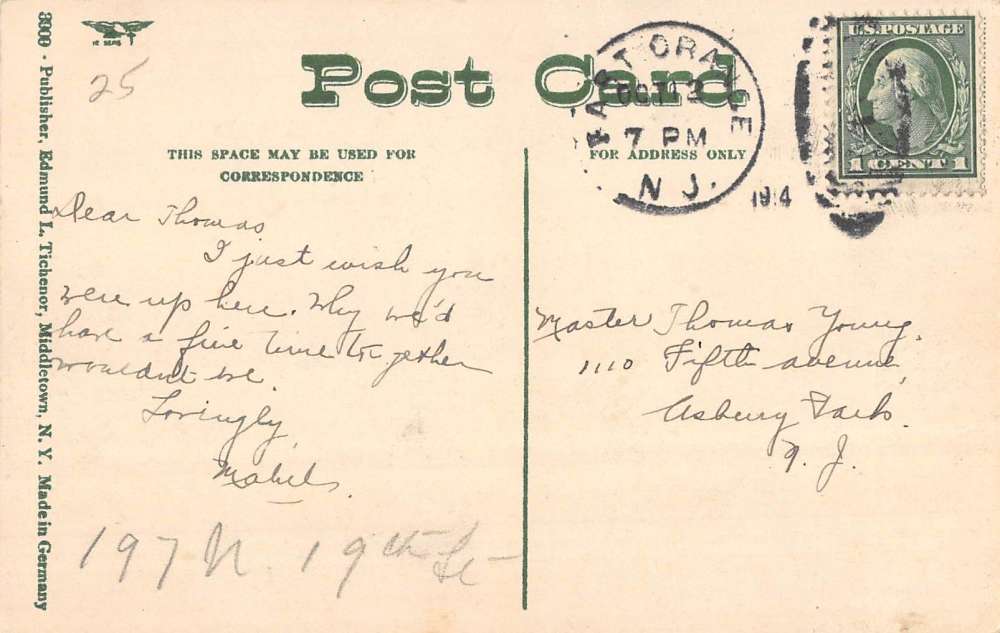 25
Post Card
EAST ORANGE
OCT 12
7 PM
N.J.
1914
U.S. POSTAGE
1 CENT 1
THIS SPACE MAY BE USED FOR
CORRESPONDENCE
FOR ADDRESS ONLY
Dear Thomas
I just wish you
were up here. Why we'd
have a fine time together
wouldn't we.
Lovingly,
Mabel.
197 N 19th St
Master Thomas Young.
1110 Fifth avenue,
Asbury Park.
N. J.
8909 - Publisher, Edmund L. Tichenor, Middletown, N. Y. Made in Germany